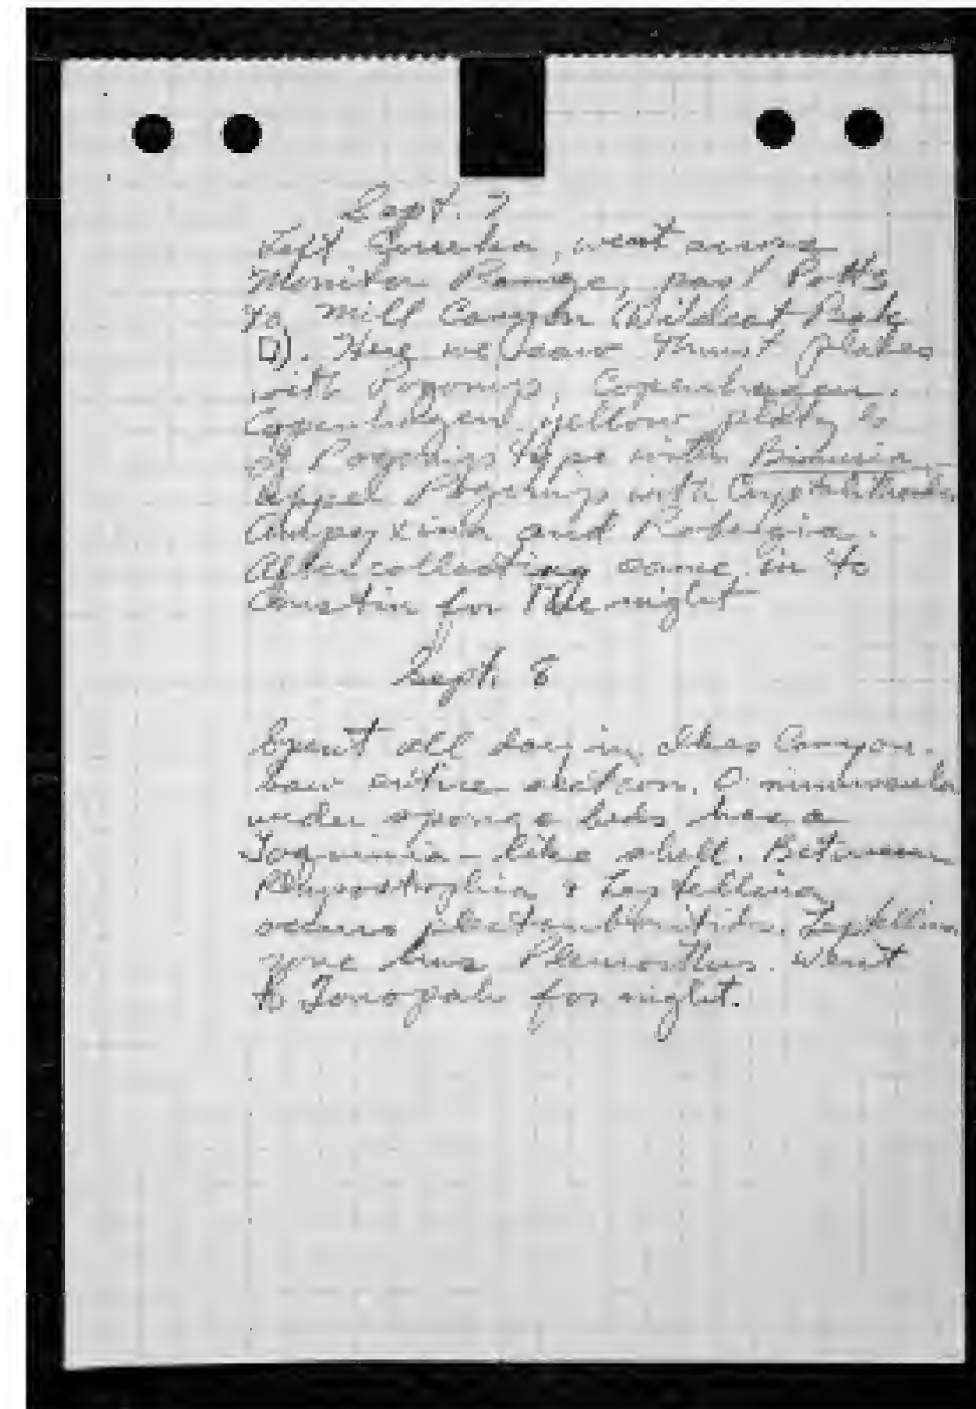 Sept. 7
Left Eureka, went across
Monitor Range, past Potts
to Mill Canyon (Wildcat Peak
Q). Here we saw Thrust plates
with Pogonip, Copenhagen.
Copenhagen yellow platy ls
of Pogonip type with Bimuria
Upper Pogonip with Cryptolithoides
Ampyxina and Robergia.
After collecting came in to
Austin for the night
Sept. 8
Spent all day in Ikes Canyon.
Saw entire section. O. minusculа
under sponge beds has a
Toquimia-like shell. Between
Rhysostrophia & Leptellina
occurs plectambonitids. Leptellina
zone has Pleurorthis. Went
to Tonopah for night.